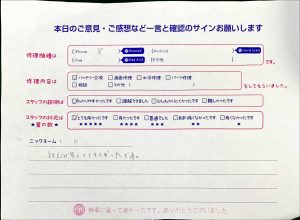 本日のご意見・ご感想など一言と確認のサインお願いします
修理機種は
iPhone 8
Android
iPad
その他
です。
修理内容は
バッテリー交換 画面修理 水没修理 パーツ修理
相談 その他
をしてもらいました。
スタッフの説明は
わかりやすかったです 理解できました 難しかったです
スタッフの対応は
★星の数★
とても良かったです 良かったです 普通でした 良くなかったです
★★★★★ ★★★★ ★★★ ★★ ★
ニックネーム: K
対応が早くてよかったです。
無事に直って良かったです。ありがとうございました